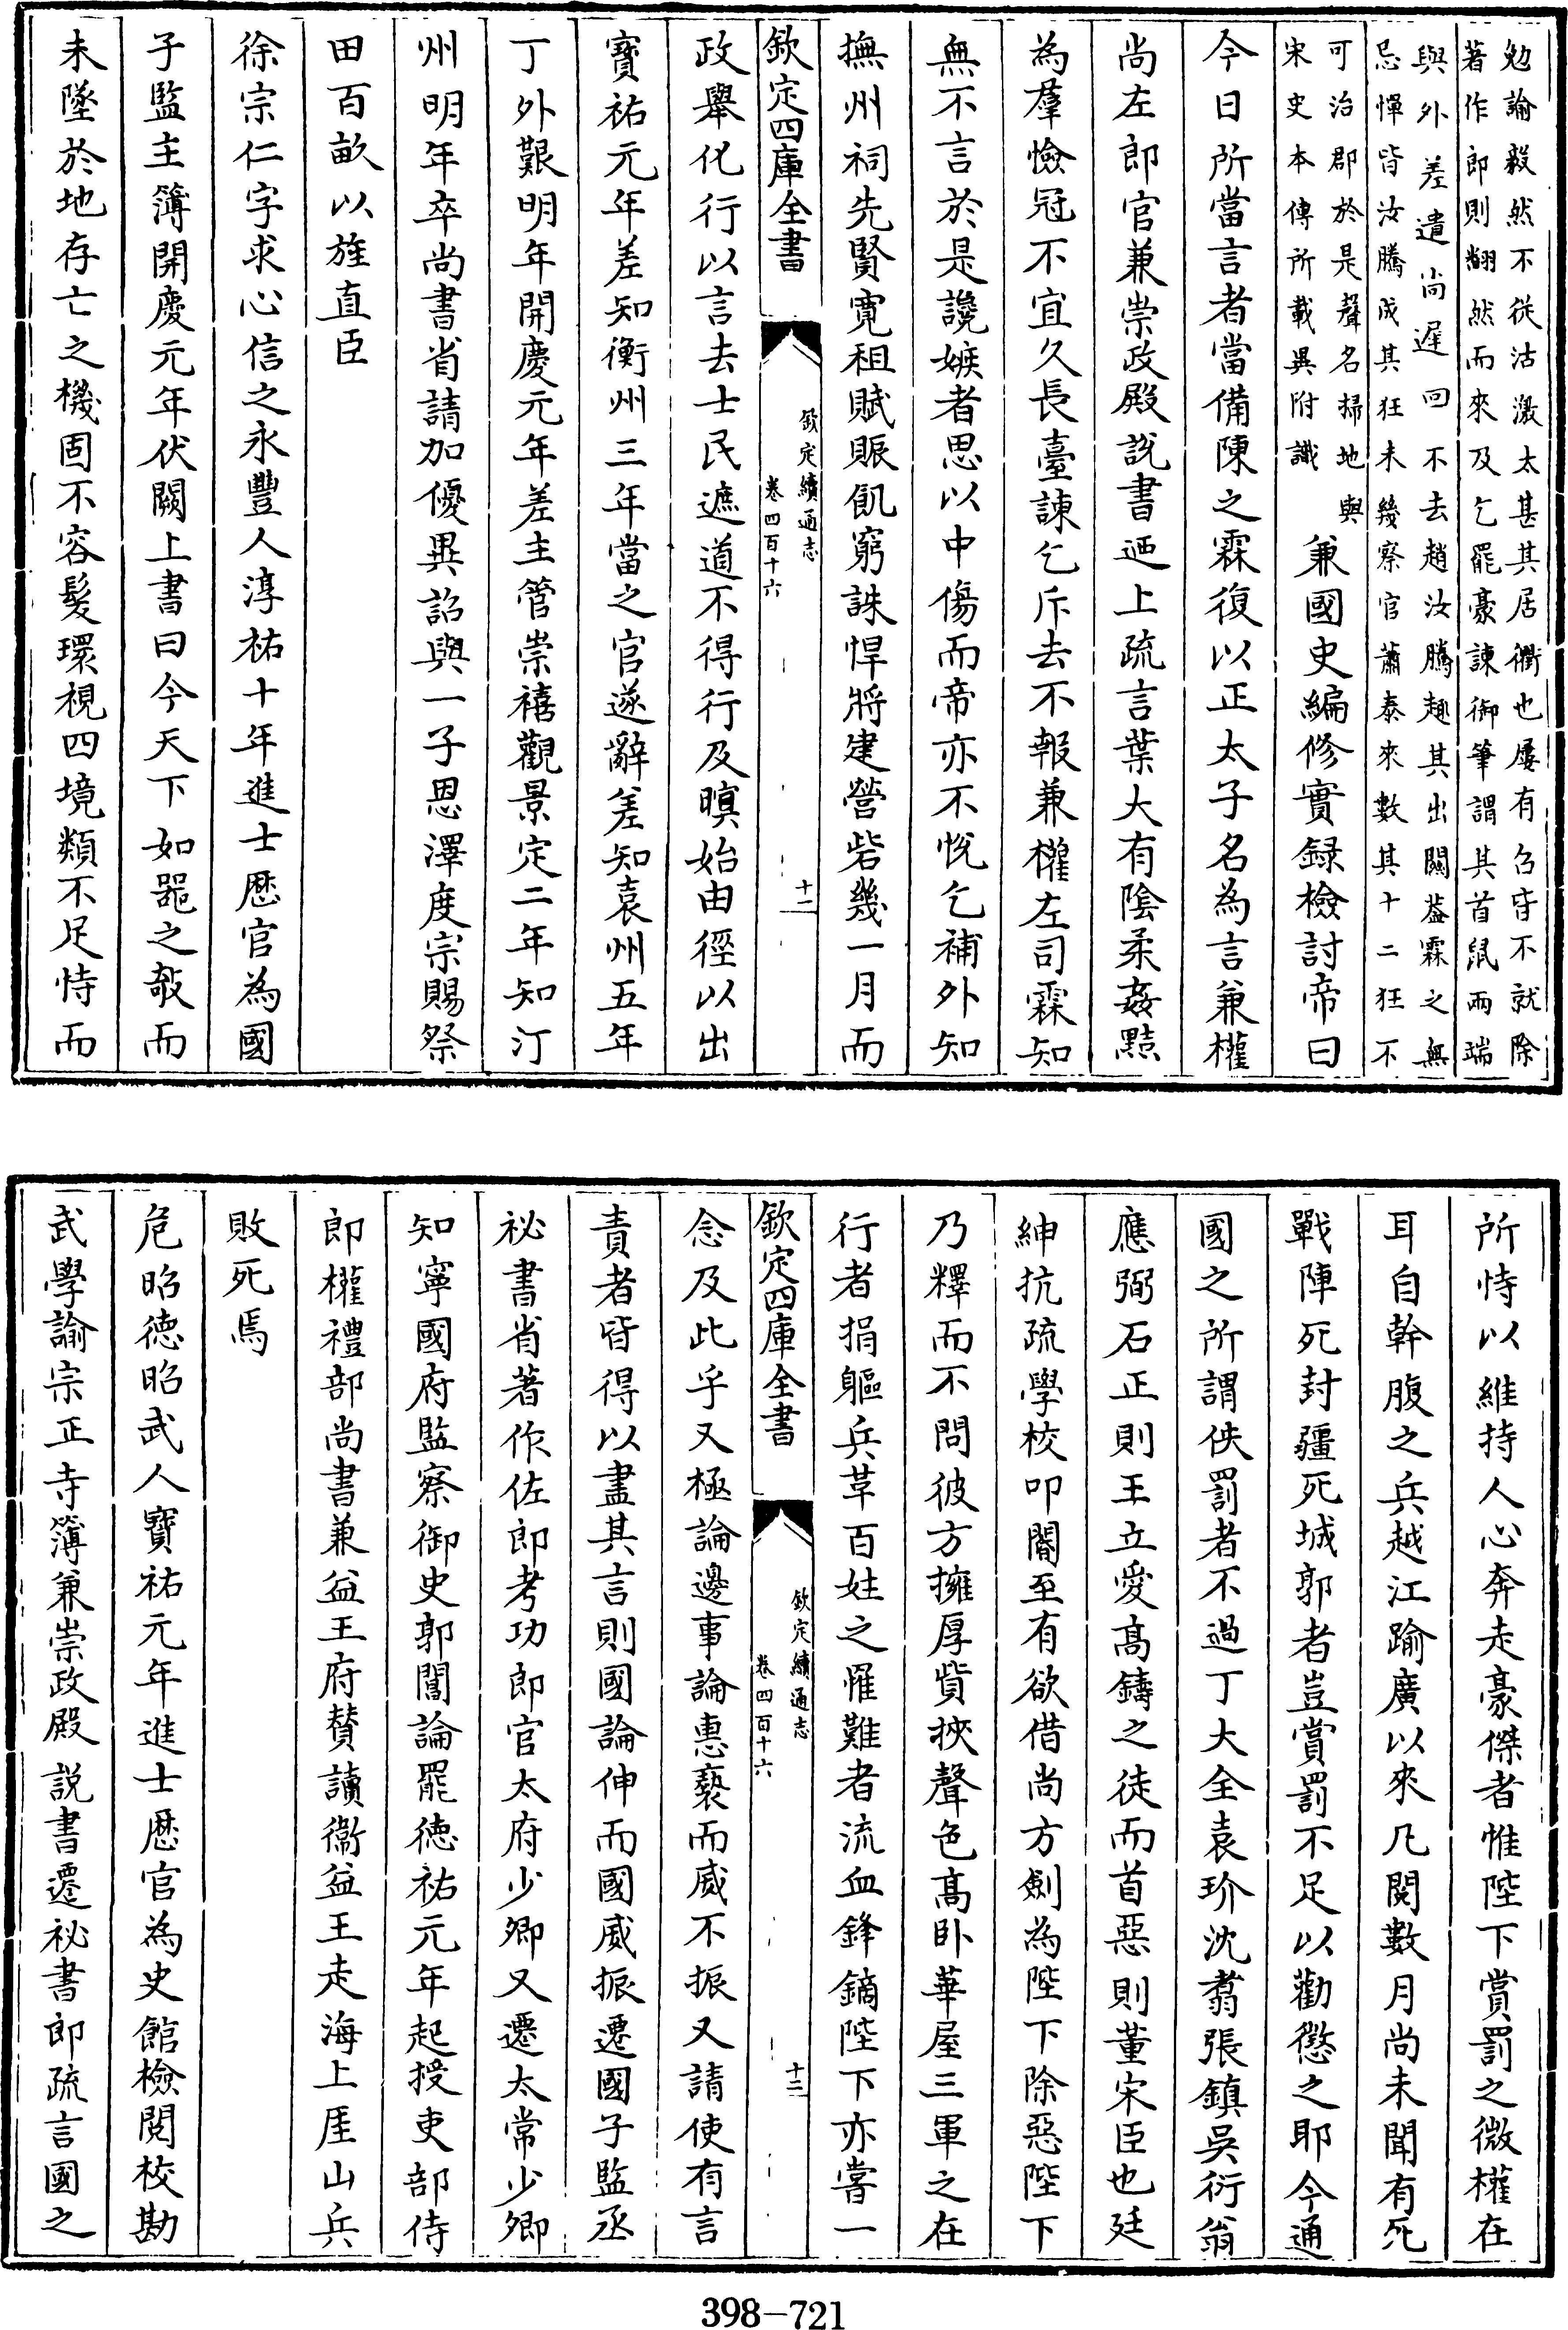 勉諭毅然不從沽激太甚其居衢也屢有召㫖不就除
著作郎則翻然而來及乞罷豪諫御筆謂其首鼠兩端
與外差遣尚遲回不去趙汝騰趣其出關葢霖之無
忌憚皆汝騰成其狂未幾察官蕭泰來數其十二狂不
可治郡於是聲名掃地與
宋史本傳所載異附識
兼國史編修實録檢討帝曰
今日所當言者當備陳之霖復以正太子名為言兼權
尚左郎官兼崇政殿説書迺上疏言葉大有陰柔姦黠
為羣憸冠不宜久長臺諫乞斥去不報兼權左司霖知
無不言於是讒嫉者思以中傷而帝亦不悦乞補外知
撫州祠先賢寛租賦賑飢窮誅悍將建營砦幾一月而
欽定四庫全書
欽定續通志
卷四百十六
十二
政舉化行以言去士民遮道不得行及暝始由徑以出
寳祐元年差知衡州三年當之官遂辭差知袁州五年
丁外艱明年開慶元年差主管崇禧觀景定二年知汀
州明年卒尚書省請加優異詔與一子恩澤度宗賜祭
田百畝以旌直臣
徐宗仁字求心信之永豐人淳祐十年進士厯官為國
子監主簿開慶元年伏闕上書曰今天下如噐之敧而
未墜於地存亡之機固不容髮環視四境類不足恃而
所恃以維持人心奔走豪傑者惟陛下賞罰之微權在
耳自幹腹之兵越江踰廣以來凡閲數月尚未聞有死
戰陣死封疆死城郭者豈賞罰不足以勸懲之耶今通
國之所謂佚罰者不過丁大全袁玠沈翥張鎮吳衍翁
應弼石正則王立愛髙鑄之徒而首惡則董宋臣也廷
紳抗疏學校叩閽至有欲借尚方劍為陛下除惡陛下
乃釋而不問彼方擁厚貲挾聲色髙卧華屋三軍之在
行者捐軀兵革百姓之罹難者流血鋒鏑陛下亦嘗一
欽定四庫全書
欽定續通志
卷四百十六
十三
念及此乎又極論邊事論惠褻而威不振又請使有言
責者皆得以盡其言則國論伸而國威振遷國子監丞
祕書省著作佐郎考功郎官太府少卿又遷太常少卿
知寧國府監察御史郭閶論罷徳祐元年起授吏部侍
郎權禮部尚書兼益王府賛讀衞益王走海上厓山兵
敗死焉
危昭徳昭武人寳祐元年進士厯官為史館檢閲校勘
武學諭宗正寺簿兼崇政殿説書遷祕書郎疏言國之
398-721